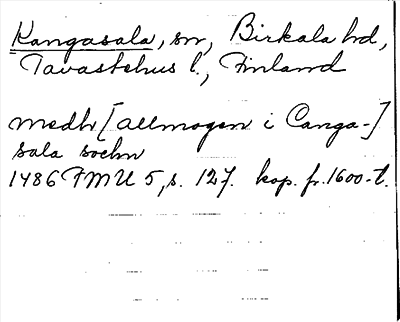 Kangasala, sn, Birkala hd,
Tavastehus l., Finland
medh [allmogen i Canga-]
sala sochn
1486 FMU 5, s. 127. kop. fr. 1600-t.